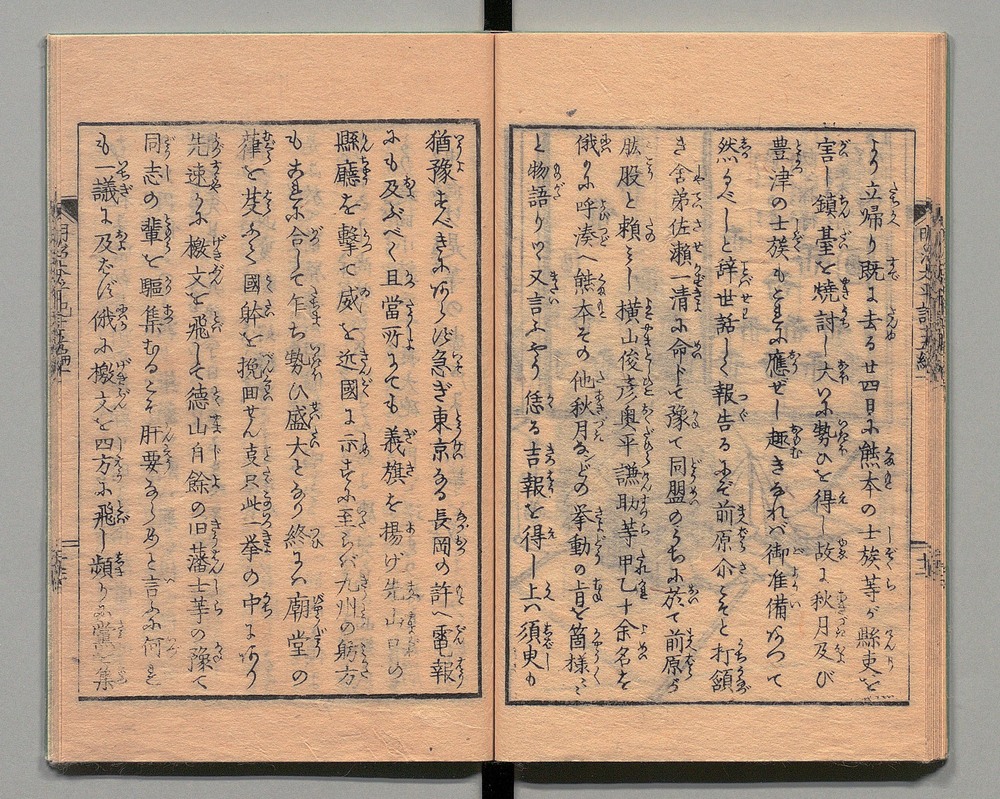 より立帰り既に去る廿四日に熊本の士族等が縣吏を
害し鎮臺を焼討し大いに勢ひを得し故に秋月及び
豊津の士族もともに應ぜし趣きなれバ御准備あつて
然るべしと辞世話しく報告るにぞ前原ハこそと打額
き舎弟佐瀬一清に命じて豫て同盟のうちに於て前原が
肱股と頼みし横山俊彦奥平謙助等甲乙十余名を
俄かに呼湊へ熊本その他秋月などの挙動の旨を箇様〻〻
と物語りつ又言ふやう恁る吉報を得し上ハ須臾も
猶豫すべきにあらず急ぎ東京なる長岡の許へ電報
にも及ぶべく且當所にても義旗を揚げ先山口の
縣廳を撃て威を近國に示すに至らバ九州の舫方
もこれに合して乍ち勢ひ盛大となり終にハ廟堂の
葎を芟ふく國躰を挽回せん事只此一挙の中にあり
先速かに檄文を飛して徳山自餘の旧藩士等の豫て
同志の輩を驅集むるこそ肝要ならめと言ふに何も
も一議に及ばず俄に檄文を四方に飛し頻りに黨を集